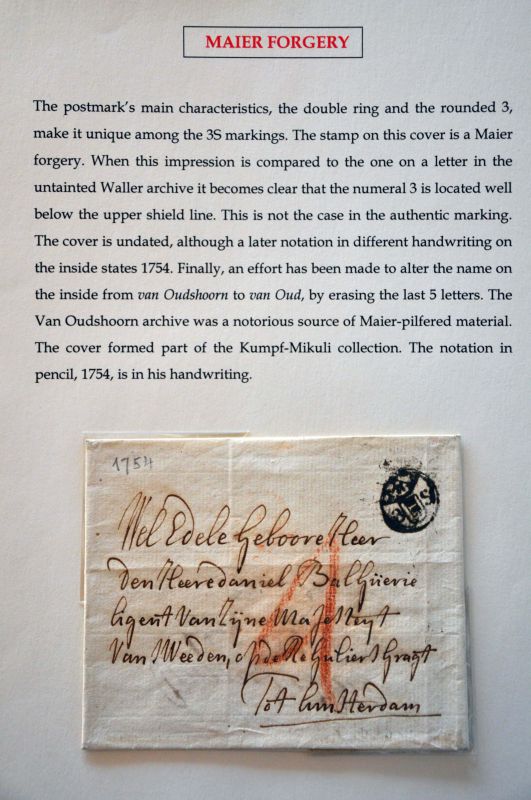 MAIER FORGERY
The postmark's main characteristics, the double ring and the rounded 3,
make it unique among the 3S markings. The stamp on this cover is a Maier
forgery. When this impression is compared to the one on a letter in the
untainted Waller archive it becomes clear that the numeral 3 is located well
below the upper shield line. This is not the case in the authentic marking.
The cover is undated, although a later notation in different handwriting on
the inside states 1754. Finally, an effort has been made to alter the name on
the inside from van Oudshoorn to van Oud, by erasing the last 5 letters. The
Van Oudshoorn archive was a notorious source of Maier-pilfered material.
The cover formed part of the Kumpf-Mikuli collection. The notation in
pencil, 1754, is in his handwriting.
1754
Wel Edele Geboore Heer
den Heere daniel Balguerie
Agent Van Zijne Majesteyt
Van Sweeden, op de Reguliers Gragt
Tot Amsterdam